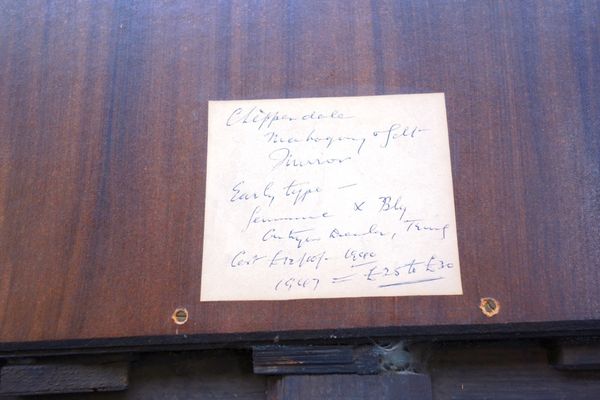 Chippendale
Mahogany & Gilt
Mirror
Early type —
genuine x Bly
Antiques Dealer, Tring
Cost £12/10/- 1940
1947 = £25 to £30